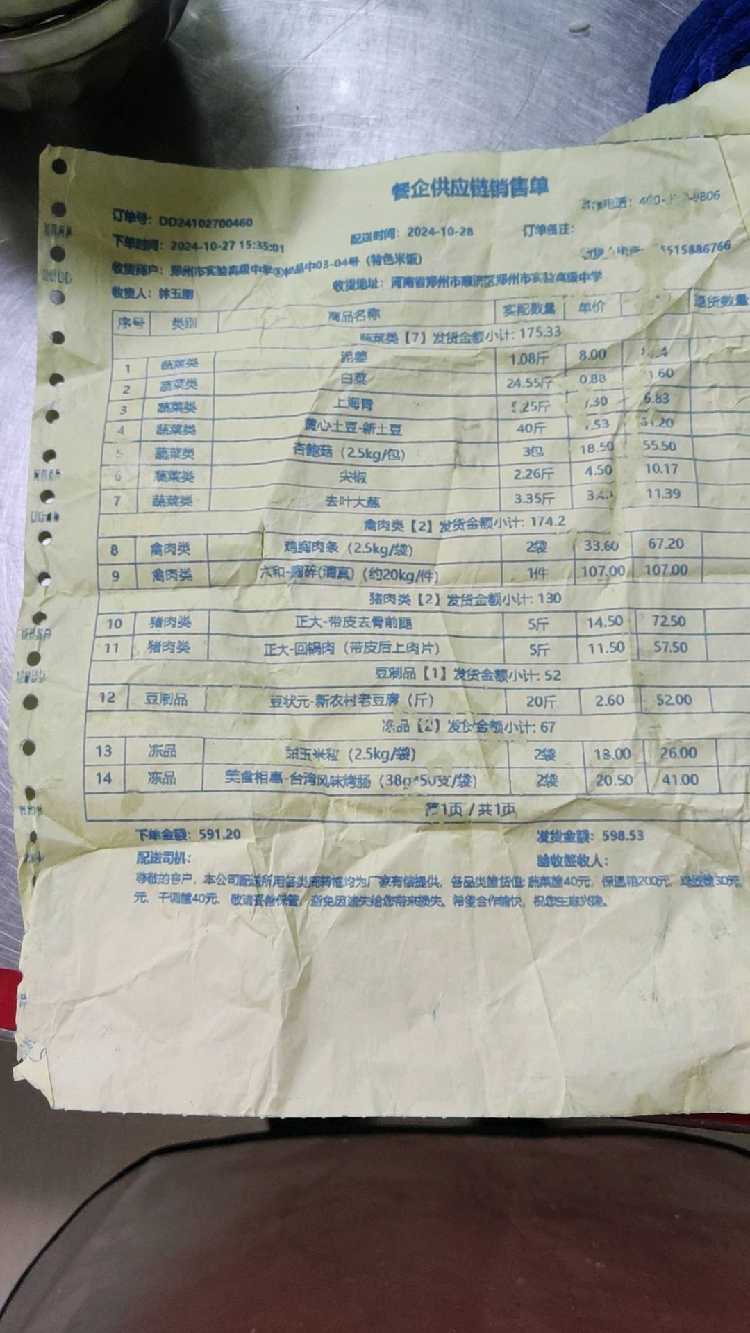 餐企供应链销售单
订单号：DD24102700460 配送时间：2024-10-28 订单备注：
下单时间：2024-10-27 15:35:01
收货商户：郑州市实验高级中学 03-04号（特色米饭） 收货地址：河南省郑州市顺河区郑州市实验高级中学
收货人：
序号 类别 商品名称 实配数量 单价 退货数量
蔬菜类【7】发货金额小计: 175.33
1 蔬菜类 1.08斤 8.00
2 蔬菜类 白菜 24.55斤 0.88
3 蔬菜类 上海青 5.25斤 6.83
4 蔬菜类 黄心土豆-新土豆 40斤
5 蔬菜类 杏鲍菇（2.5kg/包） 3包 18.50 55.50
6 蔬菜类 尖椒 2.26斤 4.50 10.17
7 蔬菜类 去叶大葱 3.35斤 11.39
禽肉类【2】发货金额小计: 174.2
8 禽肉类 鸡胸肉条（2.5kg/袋） 2袋 33.60 67.20
9 禽肉类 六和-胸碎(清真)（约20kg/件） 1件 107.00 107.00
猪肉类【2】发货金额小计: 130
10 猪肉类 正大-带皮去骨前腿 5斤 14.50 72.50
11 猪肉类 正大-回锅肉（带皮后上肉片） 5斤 11.50 57.50
豆制品【1】发货金额小计: 52
12 豆制品 豆状元-新农村老豆腐（斤） 20斤 2.60 52.00
冻品【2】发货金额小计: 67
13 冻品 甜玉米粒（2.5kg/袋） 2袋 13.00 26.00
14 冻品 美食相惠-台湾风味烤肠（38g*50支/袋） 2袋 20.50 41.00
第1页 / 共1页
下单金额：591.20 发货金额：598.53
配送司机： 验收签收人：
尊敬的客户，本公司配送所用各类周转筐均为厂家有偿提供，各品类筐货值: 蔬菜筐40元，保温箱200元，30元
元，干调筐40元，敬请妥善保管，避免因遗失给您带来损失，希望合作愉快，祝您生意兴隆。